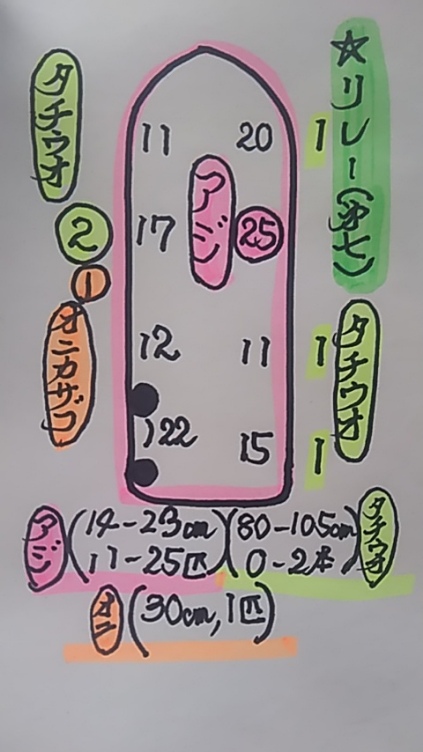 ☆リレー(沖七)
タチウオ
11 20 1
アジ
② 17 ㉕
①
オニカサゴ
12 11 1
タチウオ
)22 15 1
アジ(14-23cm
11-25匹)
(80-105cm
0-2本)タチウオ
オニ(30cm,1匹)